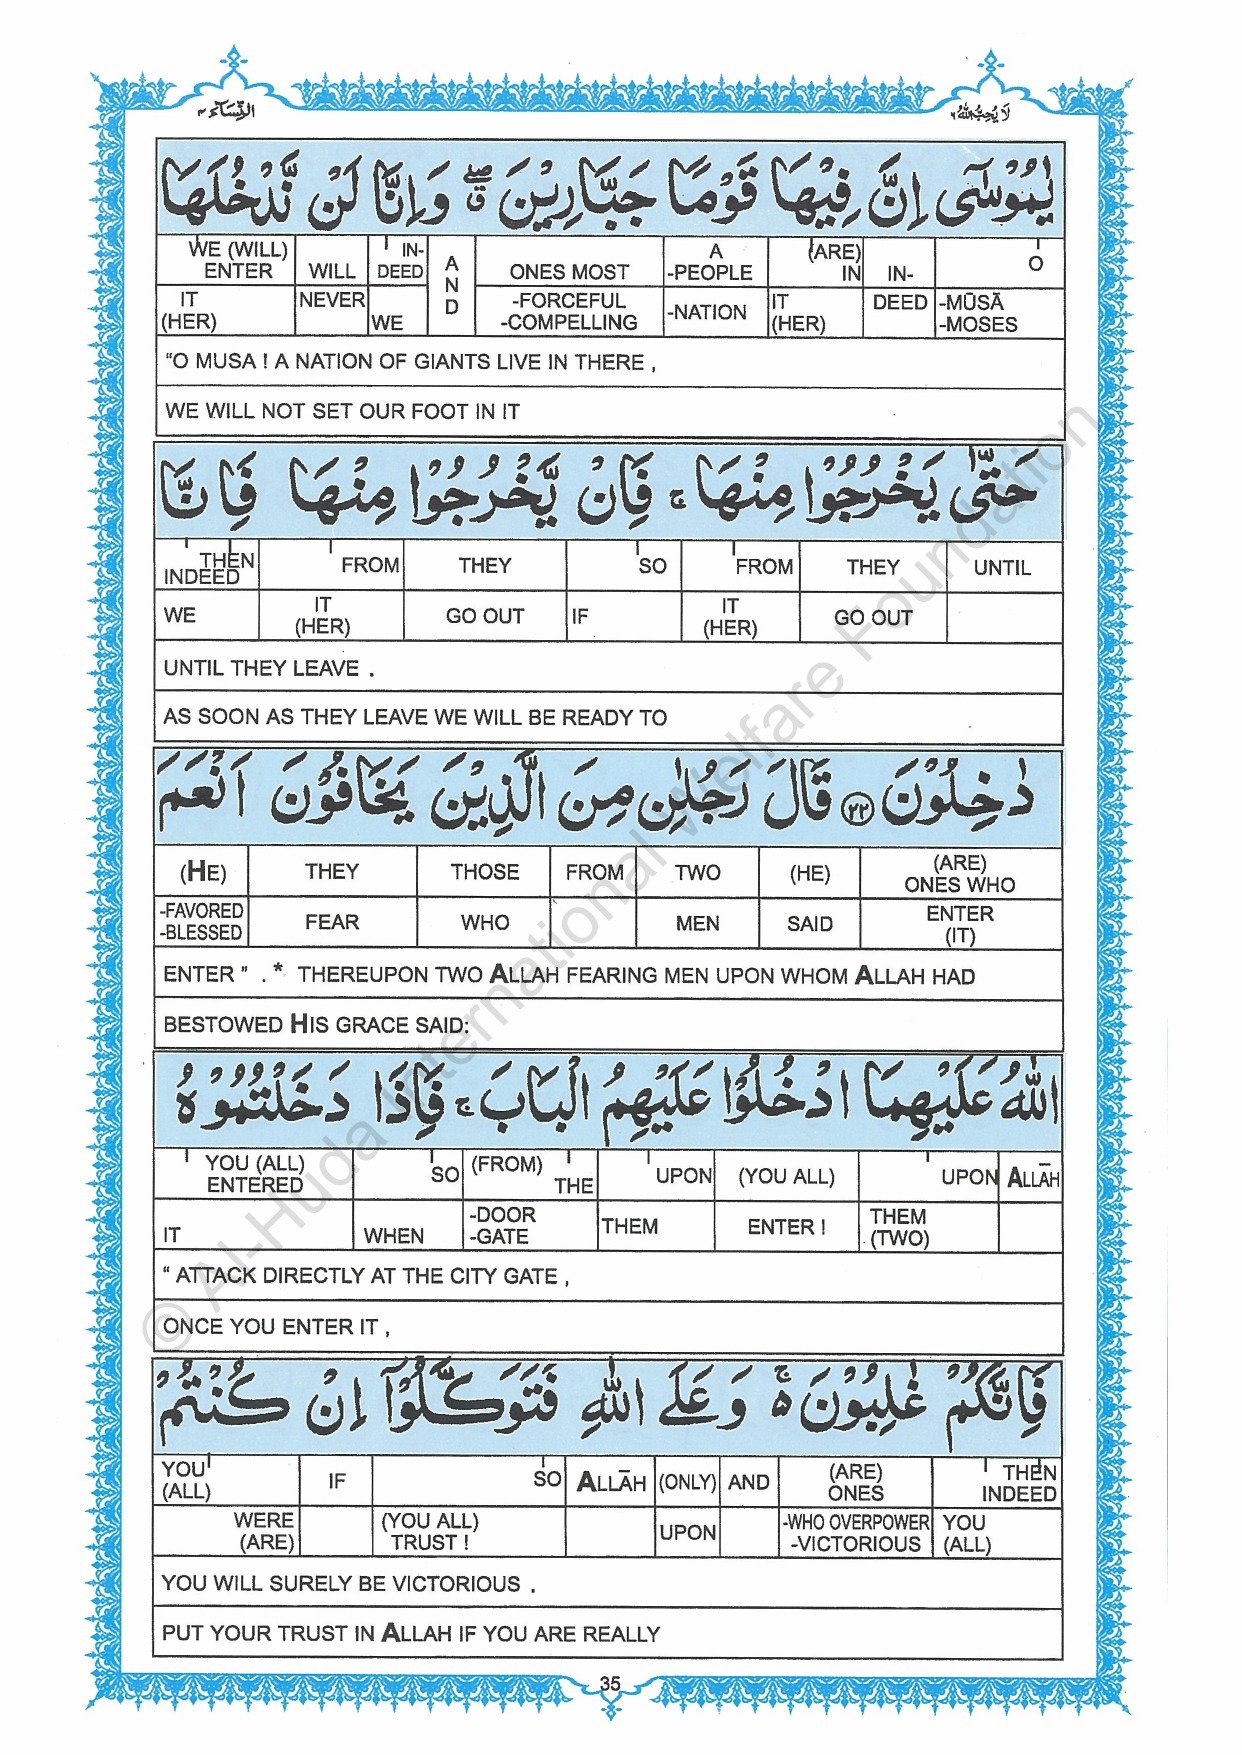 النِّسَآء ٤
لَا يُحِبُّ اللّٰهُ ٦
يٰمُوْسٰٓى اِنَّ فِيْهَا قَوْمًا جَبَّارِيْنَ ۖۗ وَاِنَّا لَنْ نَّدْخُلَهَا
WE (WILL) ENTER WILL IN-DEED AND ONES MOST A -PEOPLE (ARE) IN IN- O
IT (HER) NEVER WE -FORCEFUL -COMPELLING -NATION IT (HER) DEED -MŪSĀ -MOSES
“O MUSA ! A NATION OF GIANTS LIVE IN THERE ,
WE WILL NOT SET OUR FOOT IN IT
حَتّٰى يَخْرُجُوْا مِنْهَا ۚ فَاِنْ يَّخْرُجُوْا مِنْهَا فَاِنَّا
THEN INDEED FROM THEY SO FROM THEY UNTIL
WE IT (HER) GO OUT IF IT (HER) GO OUT
UNTIL THEY LEAVE .
AS SOON AS THEY LEAVE WE WILL BE READY TO
دٰخِلُوْنَ ٢٢ قَالَ رَجُلٰنِ مِنَ الَّذِيْنَ يَخَافُوْنَ اَنْعَمَ
(HE) THEY THOSE FROM TWO (HE) (ARE) ONES WHO
-FAVORED -BLESSED FEAR WHO MEN SAID ENTER (IT)
ENTER ” . * THEREUPON TWO ALLAH FEARING MEN UPON WHOM ALLAH HAD
BESTOWED HIS GRACE SAID:
اللّٰهُ عَلَيْهِمَا ادْخُلُوْا عَلَيْهِمُ الْبَابَ ۚ فَاِذَا دَخَلْتُمُوْهُ
YOU (ALL) ENTERED SO (FROM) THE UPON (YOU ALL) UPON ALLĀH
IT WHEN -DOOR -GATE THEM ENTER ! THEM (TWO)
“ ATTACK DIRECTLY AT THE CITY GATE ,
ONCE YOU ENTER IT ,
فَاِنَّكُمْ غٰلِبُوْنَ ۚ ەۚ وَعَلَى اللّٰهِ فَتَوَكَّلُوْٓا اِنْ كُنْتُمْ
YOU (ALL) IF SO ALLĀH (ONLY) AND (ARE) ONES THEN INDEED
WERE (ARE) (YOU ALL) TRUST ! UPON -WHO OVERPOWER -VICTORIOUS YOU (ALL)
YOU WILL SURELY BE VICTORIOUS .
PUT YOUR TRUST IN ALLAH IF YOU ARE REALLY
35
© Al-Huda International Welfare Foundation